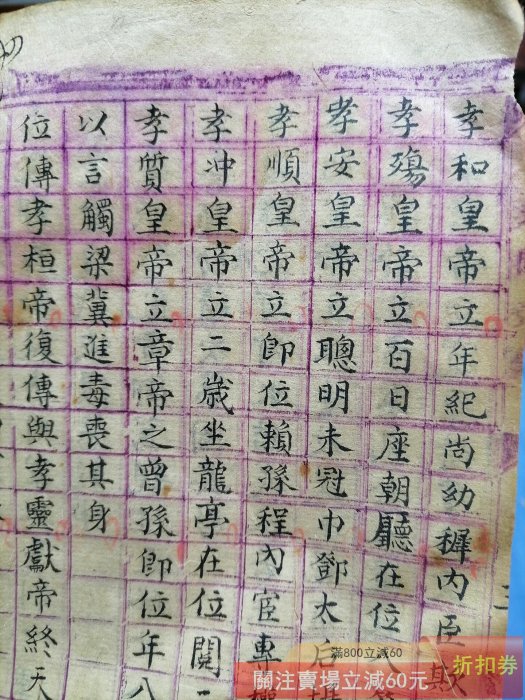 孝和皇帝立年紀尚幼穉內臣欺
孝殤皇帝立百日座朝聽在位
孝安皇帝立聰明未冠巾鄧太后
孝順皇帝立即位賴孫程內宦專
孝冲皇帝立二歲坐龍亭在位
孝質皇帝立章帝之曾孫即位年八
以言觸梁冀進毒喪其身
位傳孝桓帝復傳與孝靈獻帝終天
滿800立減60
關注賣場立減60元
折扣券